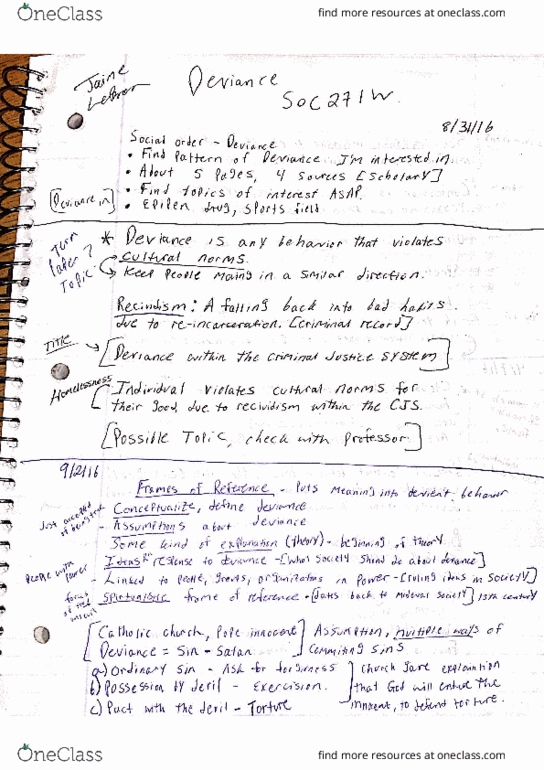 OneClass
find more resources at oneclass.com
Jaine
Deviance
SOC 271W.
8/31/16
Social order - Deviance
• Find Pattern of Deviance I'm interested in.
• About 5 Pages, 4 Sources [Scholary]
• Find topics of interest ASAP.
[Deviance in]
• Epipen drug, sports field
Term Paper? Topic
* Deviance is any behavior that violates
cultural norms.
Keep People Moving in a similar direction.
Recividism: A falling back into bad habits.
due to re-incarceration. [criminal record]
Title
[Deviance within the criminal Justice system]
Homelessness
Individual violates cultural norms for
their good, due to recividism within the CJS.
[Possible Topic, check with Professor]
9/2/16
Frames of Reference - Puts Meaning into devient behavior
Just accepted of being true
Conceptualize, define deviance
- Assumptions about deviance
Some kind of explanation (theory) - beginning of theory
Ideas response to deviance - [what society should do about deviance]
People with power
- Linked to People, groups, organizations in Power - [ruling ideas in Society]
frame of reference - [dates back to medieval society] 13th century
[Catholic church, Pope innocent] Assumption, multiple ways of
Deviance = Sin - Satan commiting sins
a) Ordinary sin - Ask for forgiveness
Church gave explanation
b) Possession by devil - Exercision.
that God will the
c) Pact with the devil - Torture
innocent, to defend torture.
OneClass
find more resources at oneclass.com